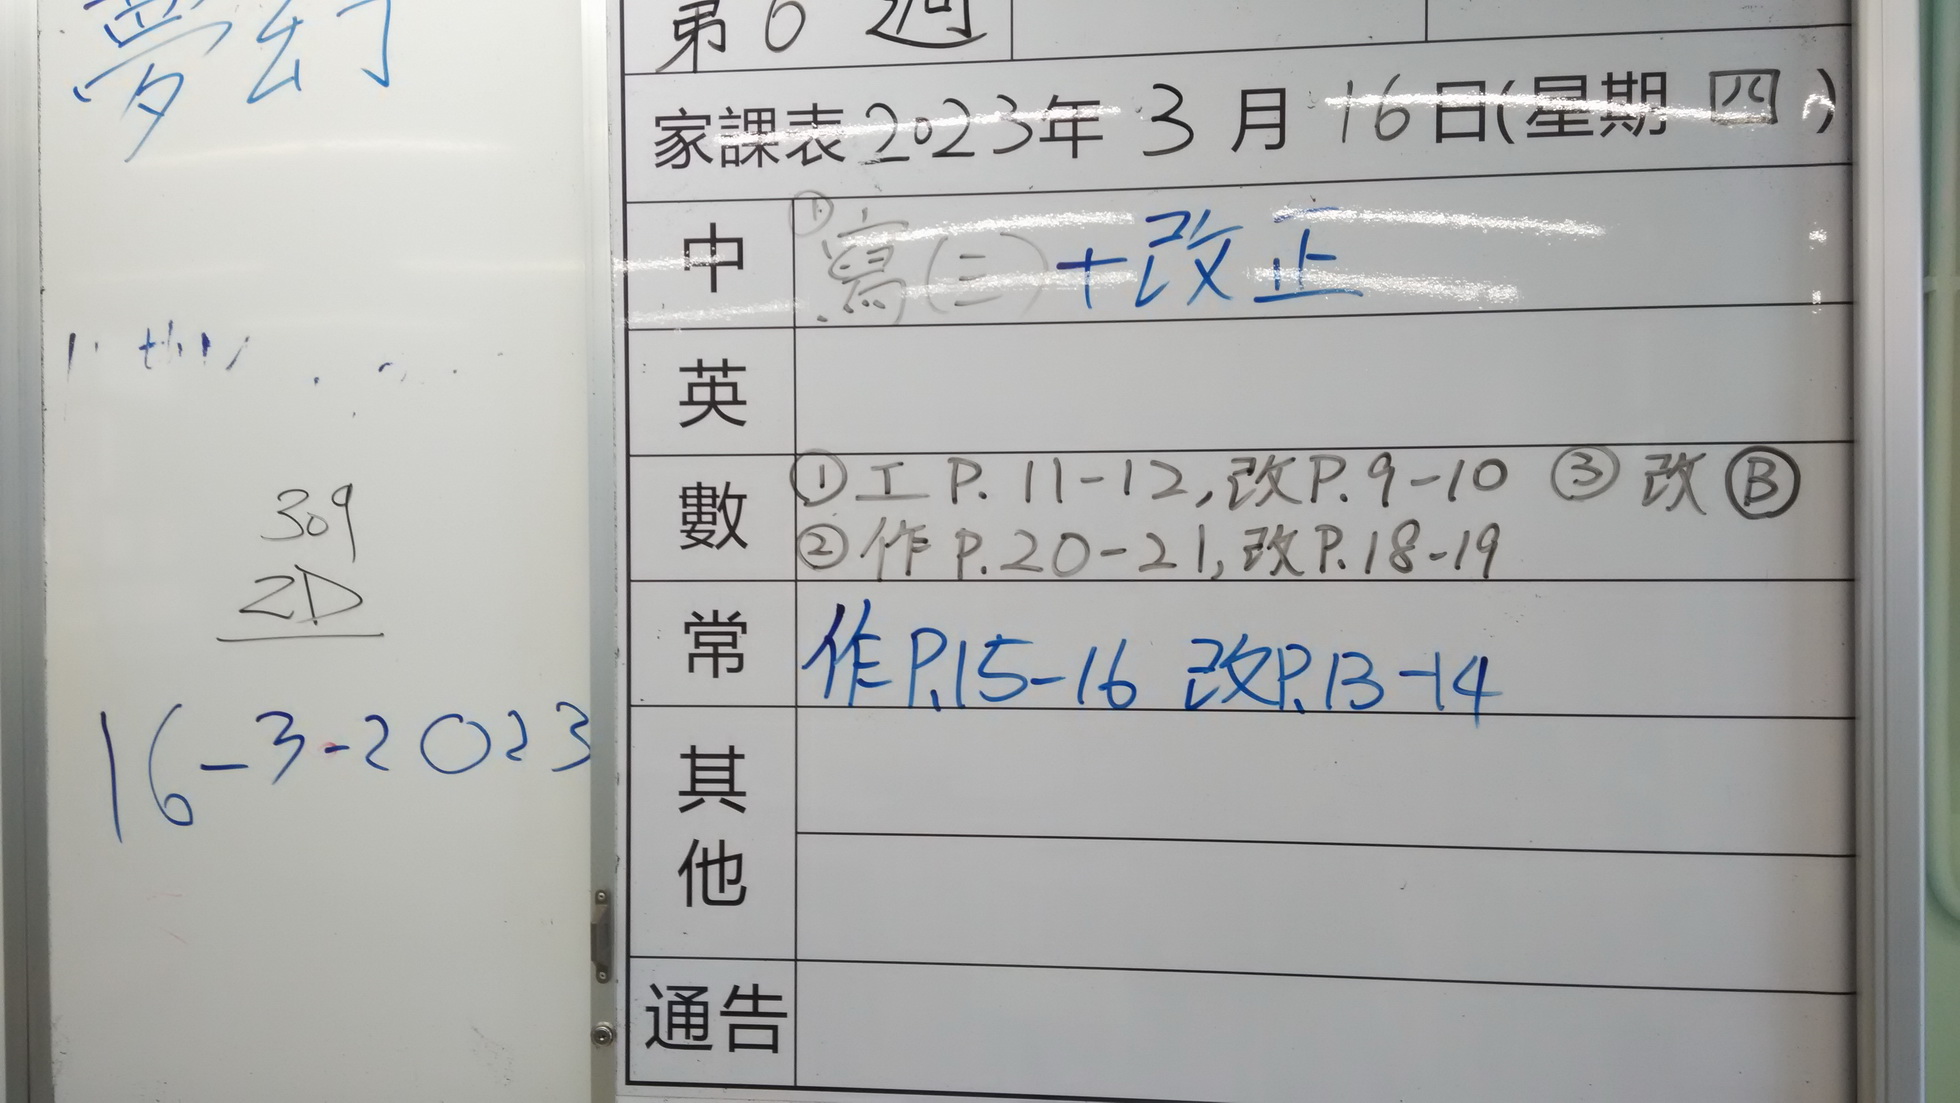 夢幻
309
2D
16-3-2023
第6週
家課表2023年3月16日(星期四)
中 ① 寫(三)+改正
英
數 ①工P.11-12,改P.9-10 ③改Ⓑ
②作P.20-21,改P.18-19
常 作P.15-16 改P.13-14
其他
通告